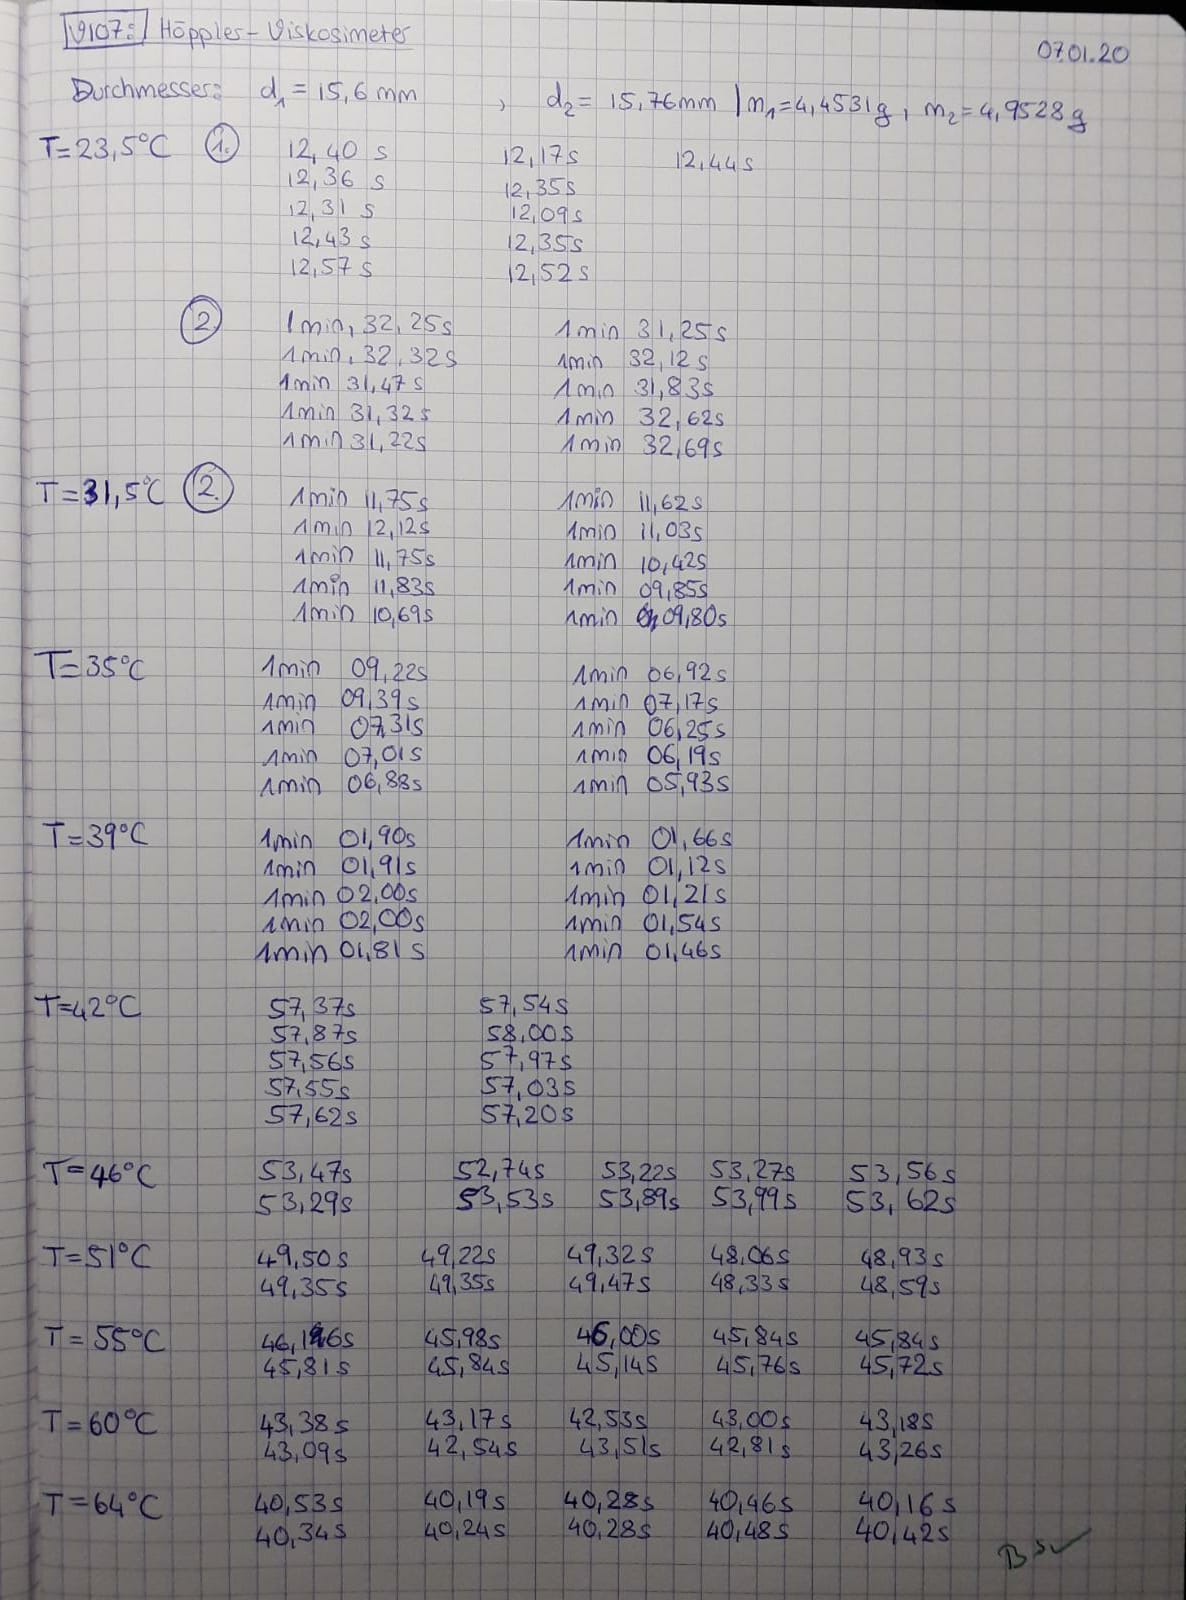 V107: Höppler-Viskosimeter
07.01.20
Durchmesser: d₁ = 15,6 mm , d₂ = 15,76mm | m₁=4,4531g, m₂=4,9528g
T=23,5°C 1. 12,40 s 12,17s 12,44s
12,36 s 12,35s
12,31 s 12,09s
12,43 s 12,35s
12,57s 12,52s
2 1min, 32,25s 1min 31,25s
1min, 32,32s 1min 32,12s
1min 31,47s 1min 31,83s
1min 31,32s 1min 32,62s
1min 31,22s 1min 32,69s
T=31,5°C 2. 1min 11,75s 1min 11,62s
1min 12,12s 1min 11,03s
1min 11,75s 1min 10,42s
1min 11,83s 1min 09,85s
1min 10,69s 1min 09,80s
T=35°C 1min 09,22s 1min 06,92s
1min 09,39s 1min 07,17s
1min 07,31s 1min 06,25s
1min 07,01s 1min 06,19s
1min 06,88s 1min 05,93s
T=39°C 1min 01,90s 1min 01,66s
1min 01,91s 1min 01,12s
1min 02,00s 1min 01,21s
1min 02,00s 1min 01,54s
1min 01,81s 1min 01,46s
T=42°C 57,37s 57,54s
57,87s 58,00s
57,56s 57,97s
57,55s 57,03s
57,62s 57,20s
T=46°C 53,47s 52,74s 53,22s 53,27s 53,56s
53,29s 53,53s 53,89s 53,99s 53,62s
T=51°C 49,50s 49,22s 49,32s 48,06s 48,93s
49,35s 49,35s 49,47s 48,33s 48,59s
T=55°C 45,98s 46,00s 45,84s 45,84s
45,81s 45,84s 45,14s 45,76s 45,72s
T=60°C 43,38s 43,17s 42,53s 43,00s 43,18s
43,09s 42,54s 43,51s 42,81s 43,26s
T=64°C 40,53s 40,19s 40,28s 40,46s 40,16s
40,34s 40,24s 40,28s 40,48s 40,42s